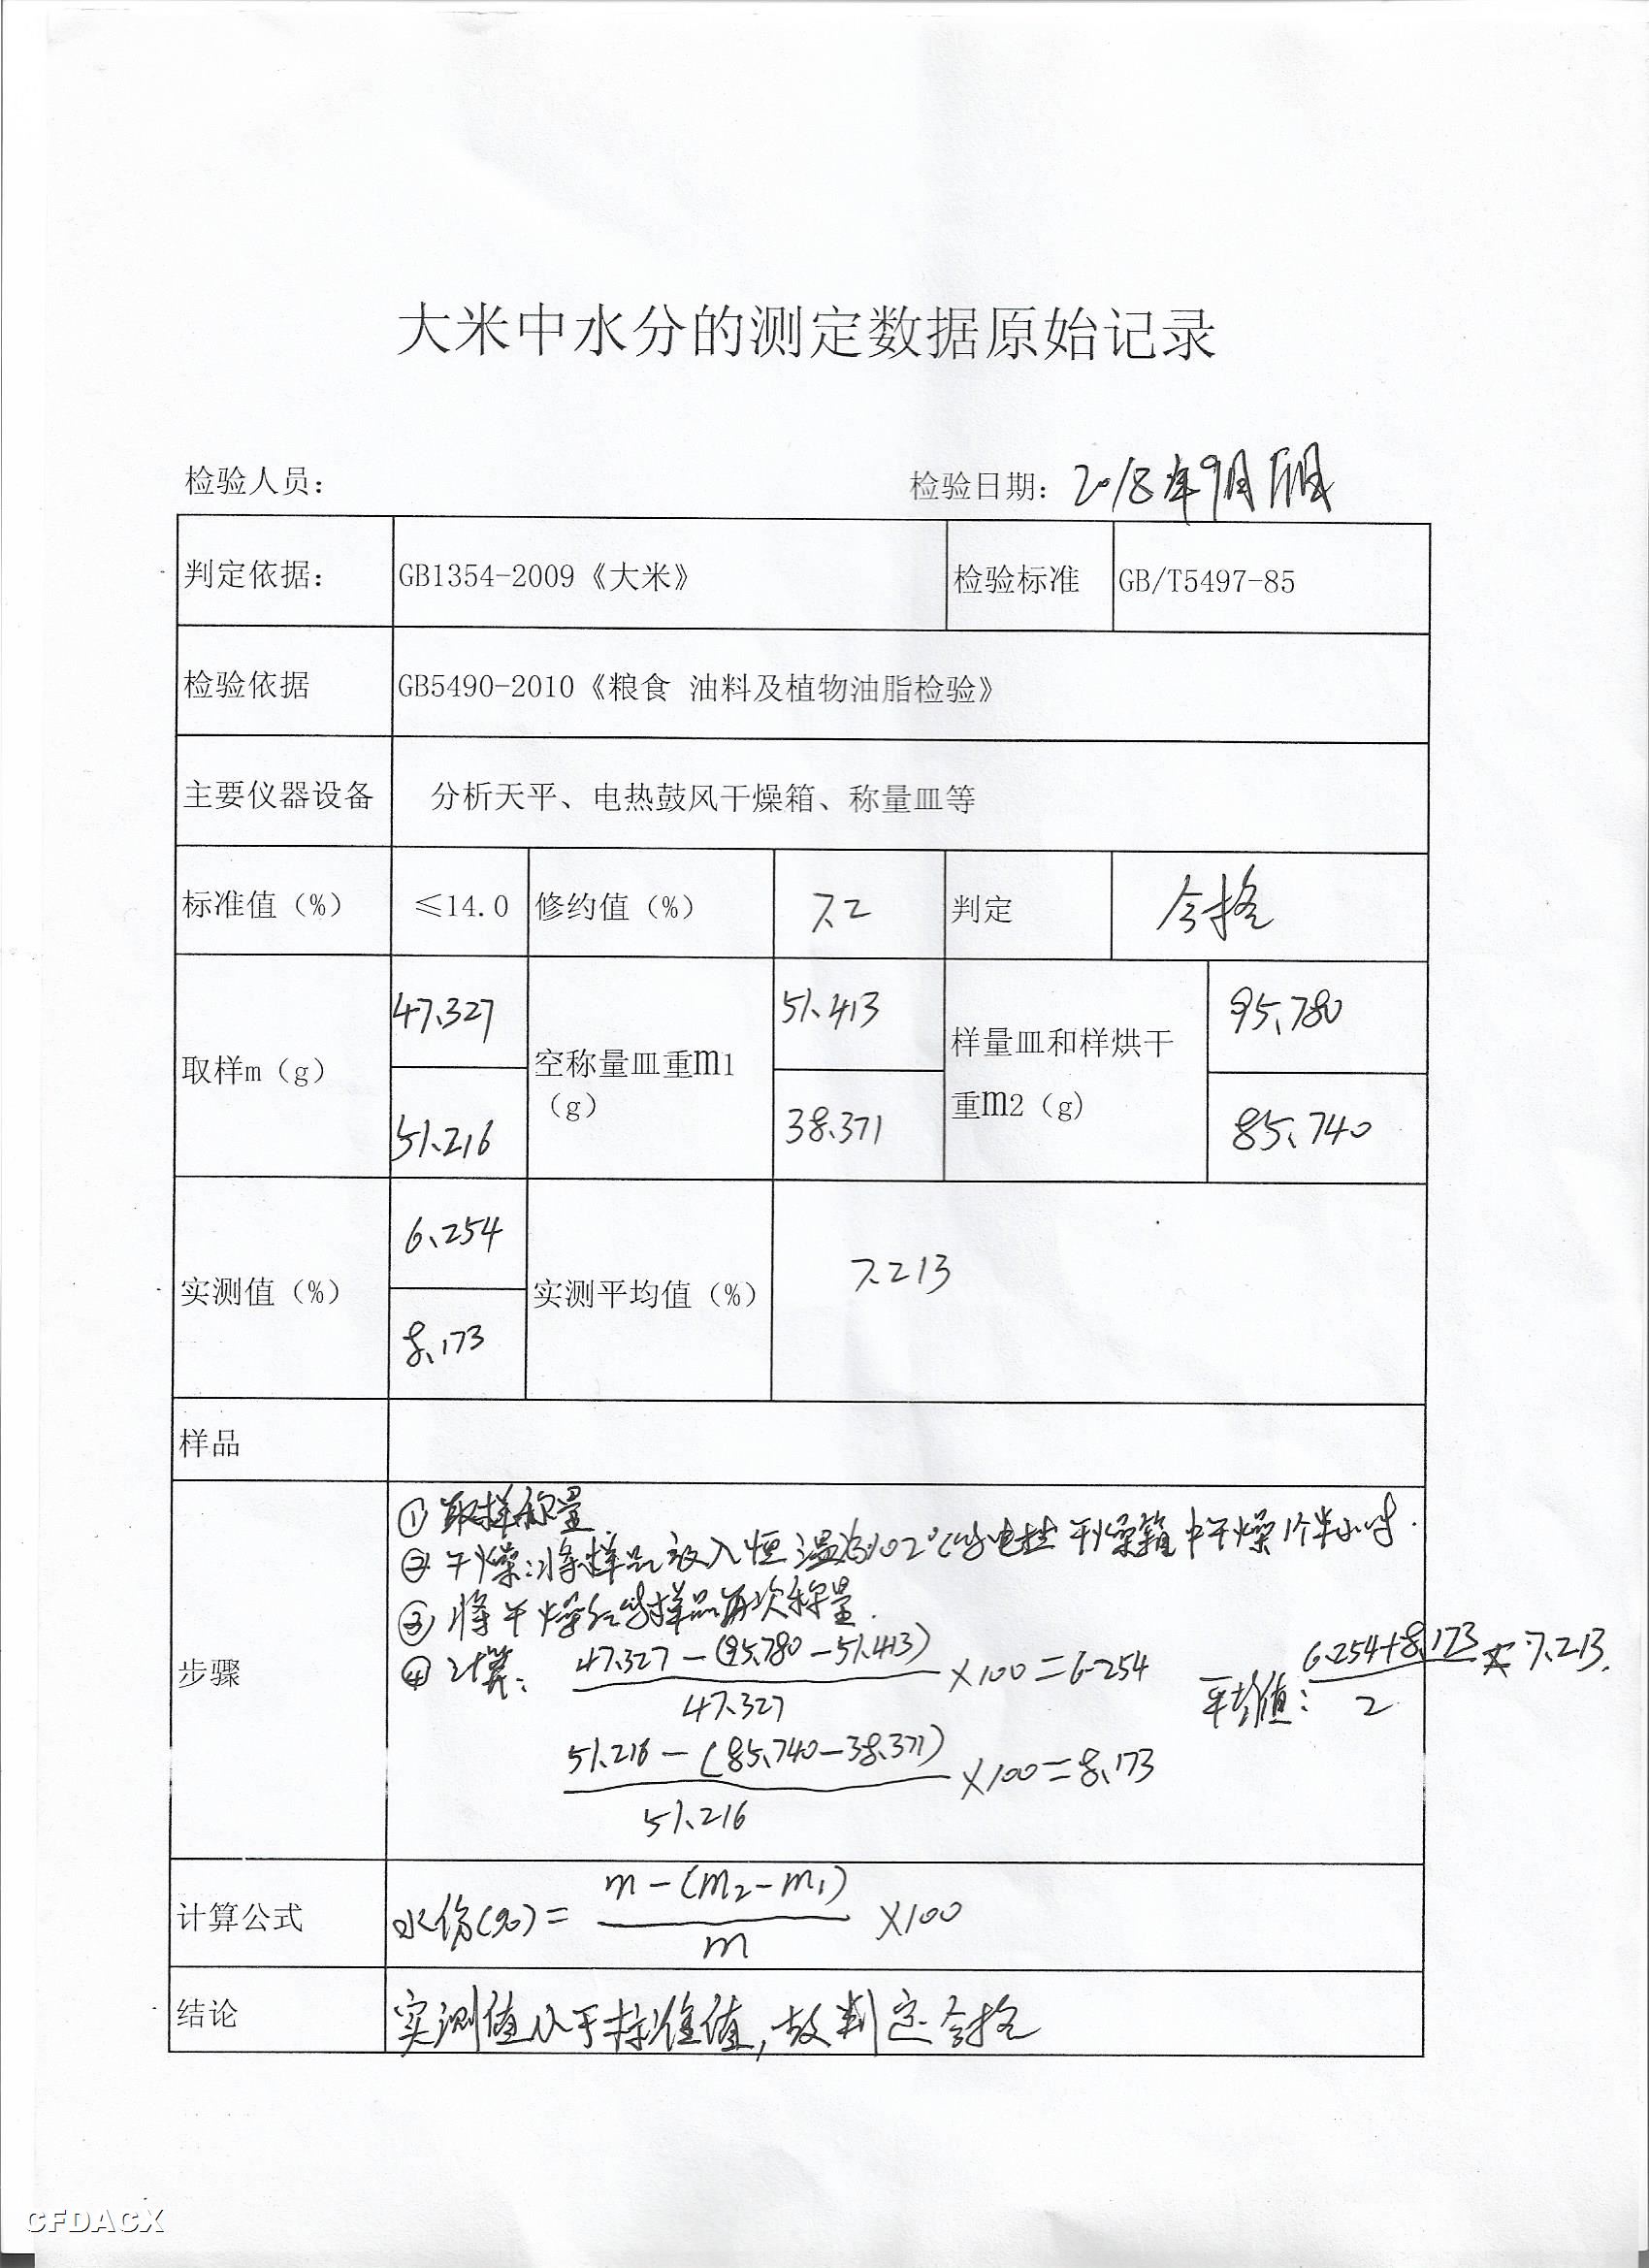 大米中水分的测定数据原始记录
检验人员：
检验日期：2018年9月
判定依据：
GB1354-2009《大米》
检验标准
GB/T5497-85
检验依据
GB5490-2010《粮食 油料及植物油脂检验》
主要仪器设备
分析天平、电热鼓风干燥箱、称量皿等
标准值（%）
≤14.0
修约值（%）
7.2
判定
合格
取样m（g）
47.327
51.216
空称量皿重m1
（g）
51.413
38.371
样量皿和样烘干
重m2（g）
95.780
85.740
实测值（%）
6.254
8.173
实测平均值（%）
7.213
样品
步骤
①取样称量
②干燥：将样品放入恒温为102℃的电热干燥箱中干燥1个半小时.
③将干燥后的样品再次称量.
④计算：
47.327-(95.780-51.413)
47.327
×100=6.254
平均值：
6.254+8.173
2
=7.213.
51.216-(85.740-38.371)
51.216
×100=8.173
计算公式
水份(%)=
m-(m2-m1)
m
×100
结论
实测值小于标准值，故判定合格
CFDACX